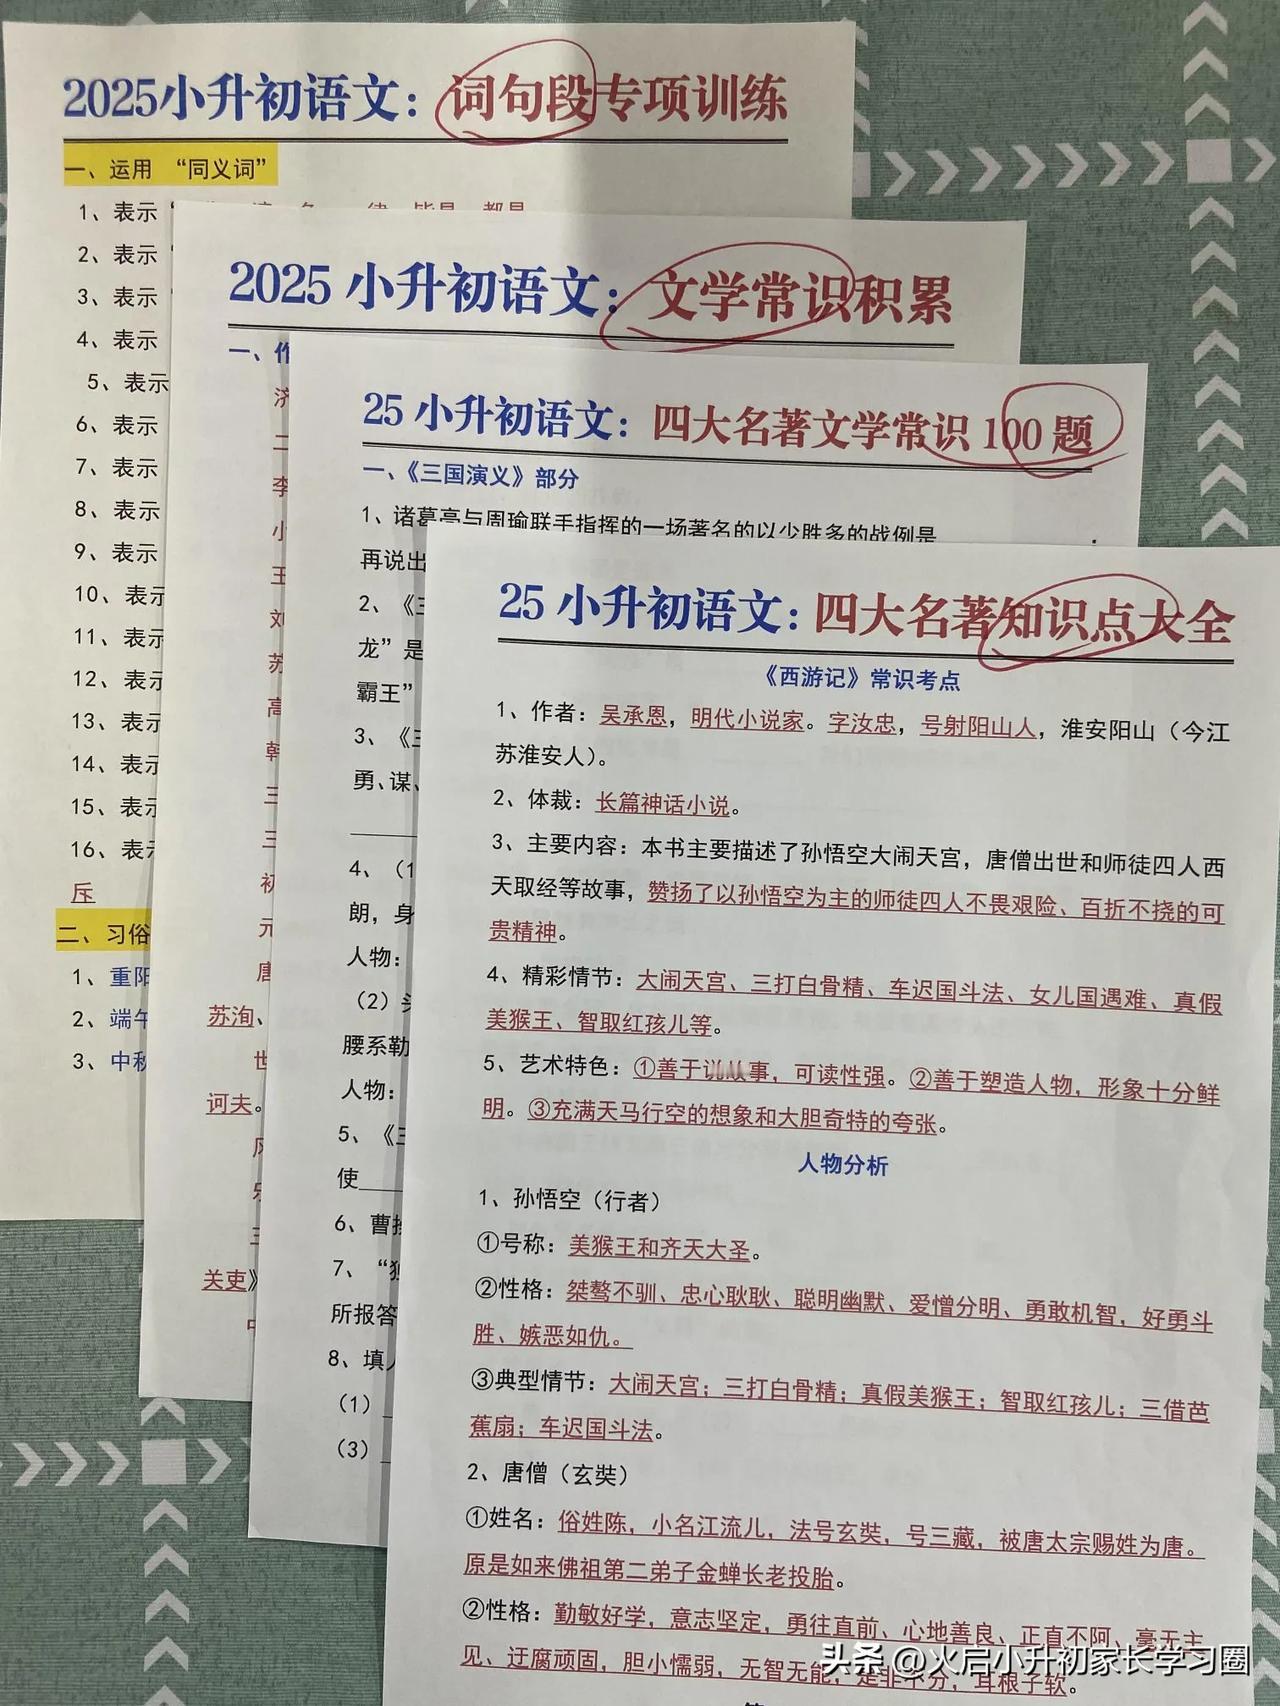 2025小升初语文：词句段专项训练
一、运用 “同义词”
1、表示
2、表示
3、表示
4、表示
5、表示
6、表示
7、表示
8、表示
9、表示
10、表示
11、表示
12、表示
13、表示
14、表示
15、表示
16、表示
斥
二、习俗
1、重阳
2、端午
3、中秋
2025 小升初语文：文学常识积累
一、作
济
二
李
小
王
刘
苏
高
韩
三
三
初
元
唐
苏洵、
世
诃夫。
关吏》
25 小升初语文：四大名著文学常识 100 题
一、《三国演义》部分
1、诸葛亮与周瑜联手指挥的一场著名的以少胜多的战例是
再说出
2、《三
龙”是
霸王”
3、《三
勇、谋、
4、（1
朗，身
人物：
（2）头
腰系勒
人物：
5、《三
使
6、曹操
7、“
所报答
8、填
（1）
（3）
25 小升初语文：四大名著知识点大全
《西游记》常识考点
1、作者：吴承恩，明代小说家。字汝忠，号射阳山人，淮安阳山（今江
苏淮安人）。
2、体裁：长篇神话小说。
3、主要内容：本书主要描述了孙悟空大闹天宫，唐僧出世和师徒四人西
天取经等故事，赞扬了以孙悟空为主的师徒四人不畏艰险、百折不挠的可
贵精神。
4、精彩情节：大闹天宫、三打白骨精、车迟国斗法、女儿国遇难、真假
美猴王、智取红孩儿等。
5、艺术特色：①善于说故事，可读性强。②善于塑造人物，形象十分鲜
明。③充满天马行空的想象和大胆奇特的夸张。
人物分析
1、孙悟空（行者）
①号称：美猴王和齐天大圣。
②性格：桀骜不驯、忠心耿耿、聪明幽默、爱憎分明、勇敢机智，好勇斗
胜、嫉恶如仇。
③典型情节：大闹天宫；三打白骨精；真假美猴王；智取红孩儿；三借芭
蕉扇；车迟国斗法。
2、唐僧（玄奘）
①姓名：俗姓陈，小名江流儿，法号玄奘，号三藏，被唐太宗赐姓为唐。
原是如来佛祖第二弟子金蝉长老投胎。
②性格：勤敏好学，意志坚定，勇往直前、心地善良、正直不阿、毫无主
见、迂腐顽固，胆小懦弱，无智无能，是非不分，耳根子软。
头条 @火启小升初家长学习圈